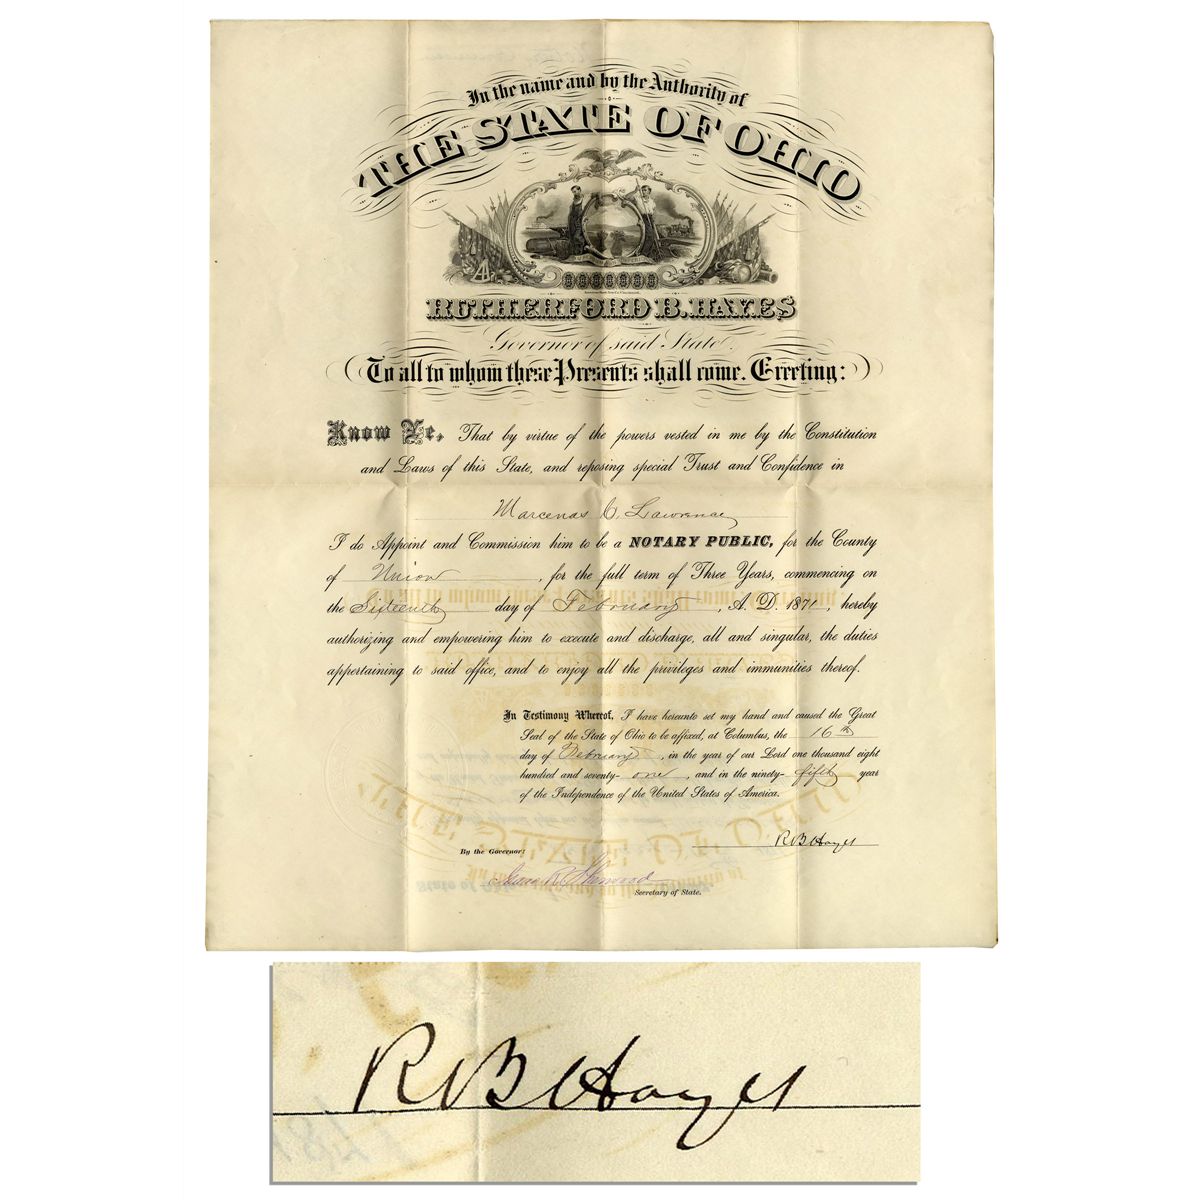 In the name and by the Authority of
THE STATE OF OHIO
RUTHERFORD B. HAYES
Governor of said State.
To all to whom these Presents shall come, Greeting:
Know Ye, That by virtue of the powers vested in me by the Constitution
and Laws of this State, and reposing special Trust and Confidence in
Marcenas C. Lawrence
I do Appoint and Commission him to be a NOTARY PUBLIC, for the County
of Union, for the full term of Three Years, commencing on
the Sixteenth day of February, A. D. 1871, hereby
authorizing and empowering him to execute and discharge, all and singular, the duties
appertaining to said office, and to enjoy all the privileges and immunities thereof.
In Testimony Whereof, I have hereunto set my hand and caused the Great
Seal of the State of Ohio to be affixed, at Columbus, the 16th
day of February, in the year of our Lord one thousand eight
hundred and seventy-one, and in the ninety-fifth year
of the Independence of the United States of America.
R B Hayes
By the Governor:
Isaac R. Sherwood
Secretary of State.
R B Hayes